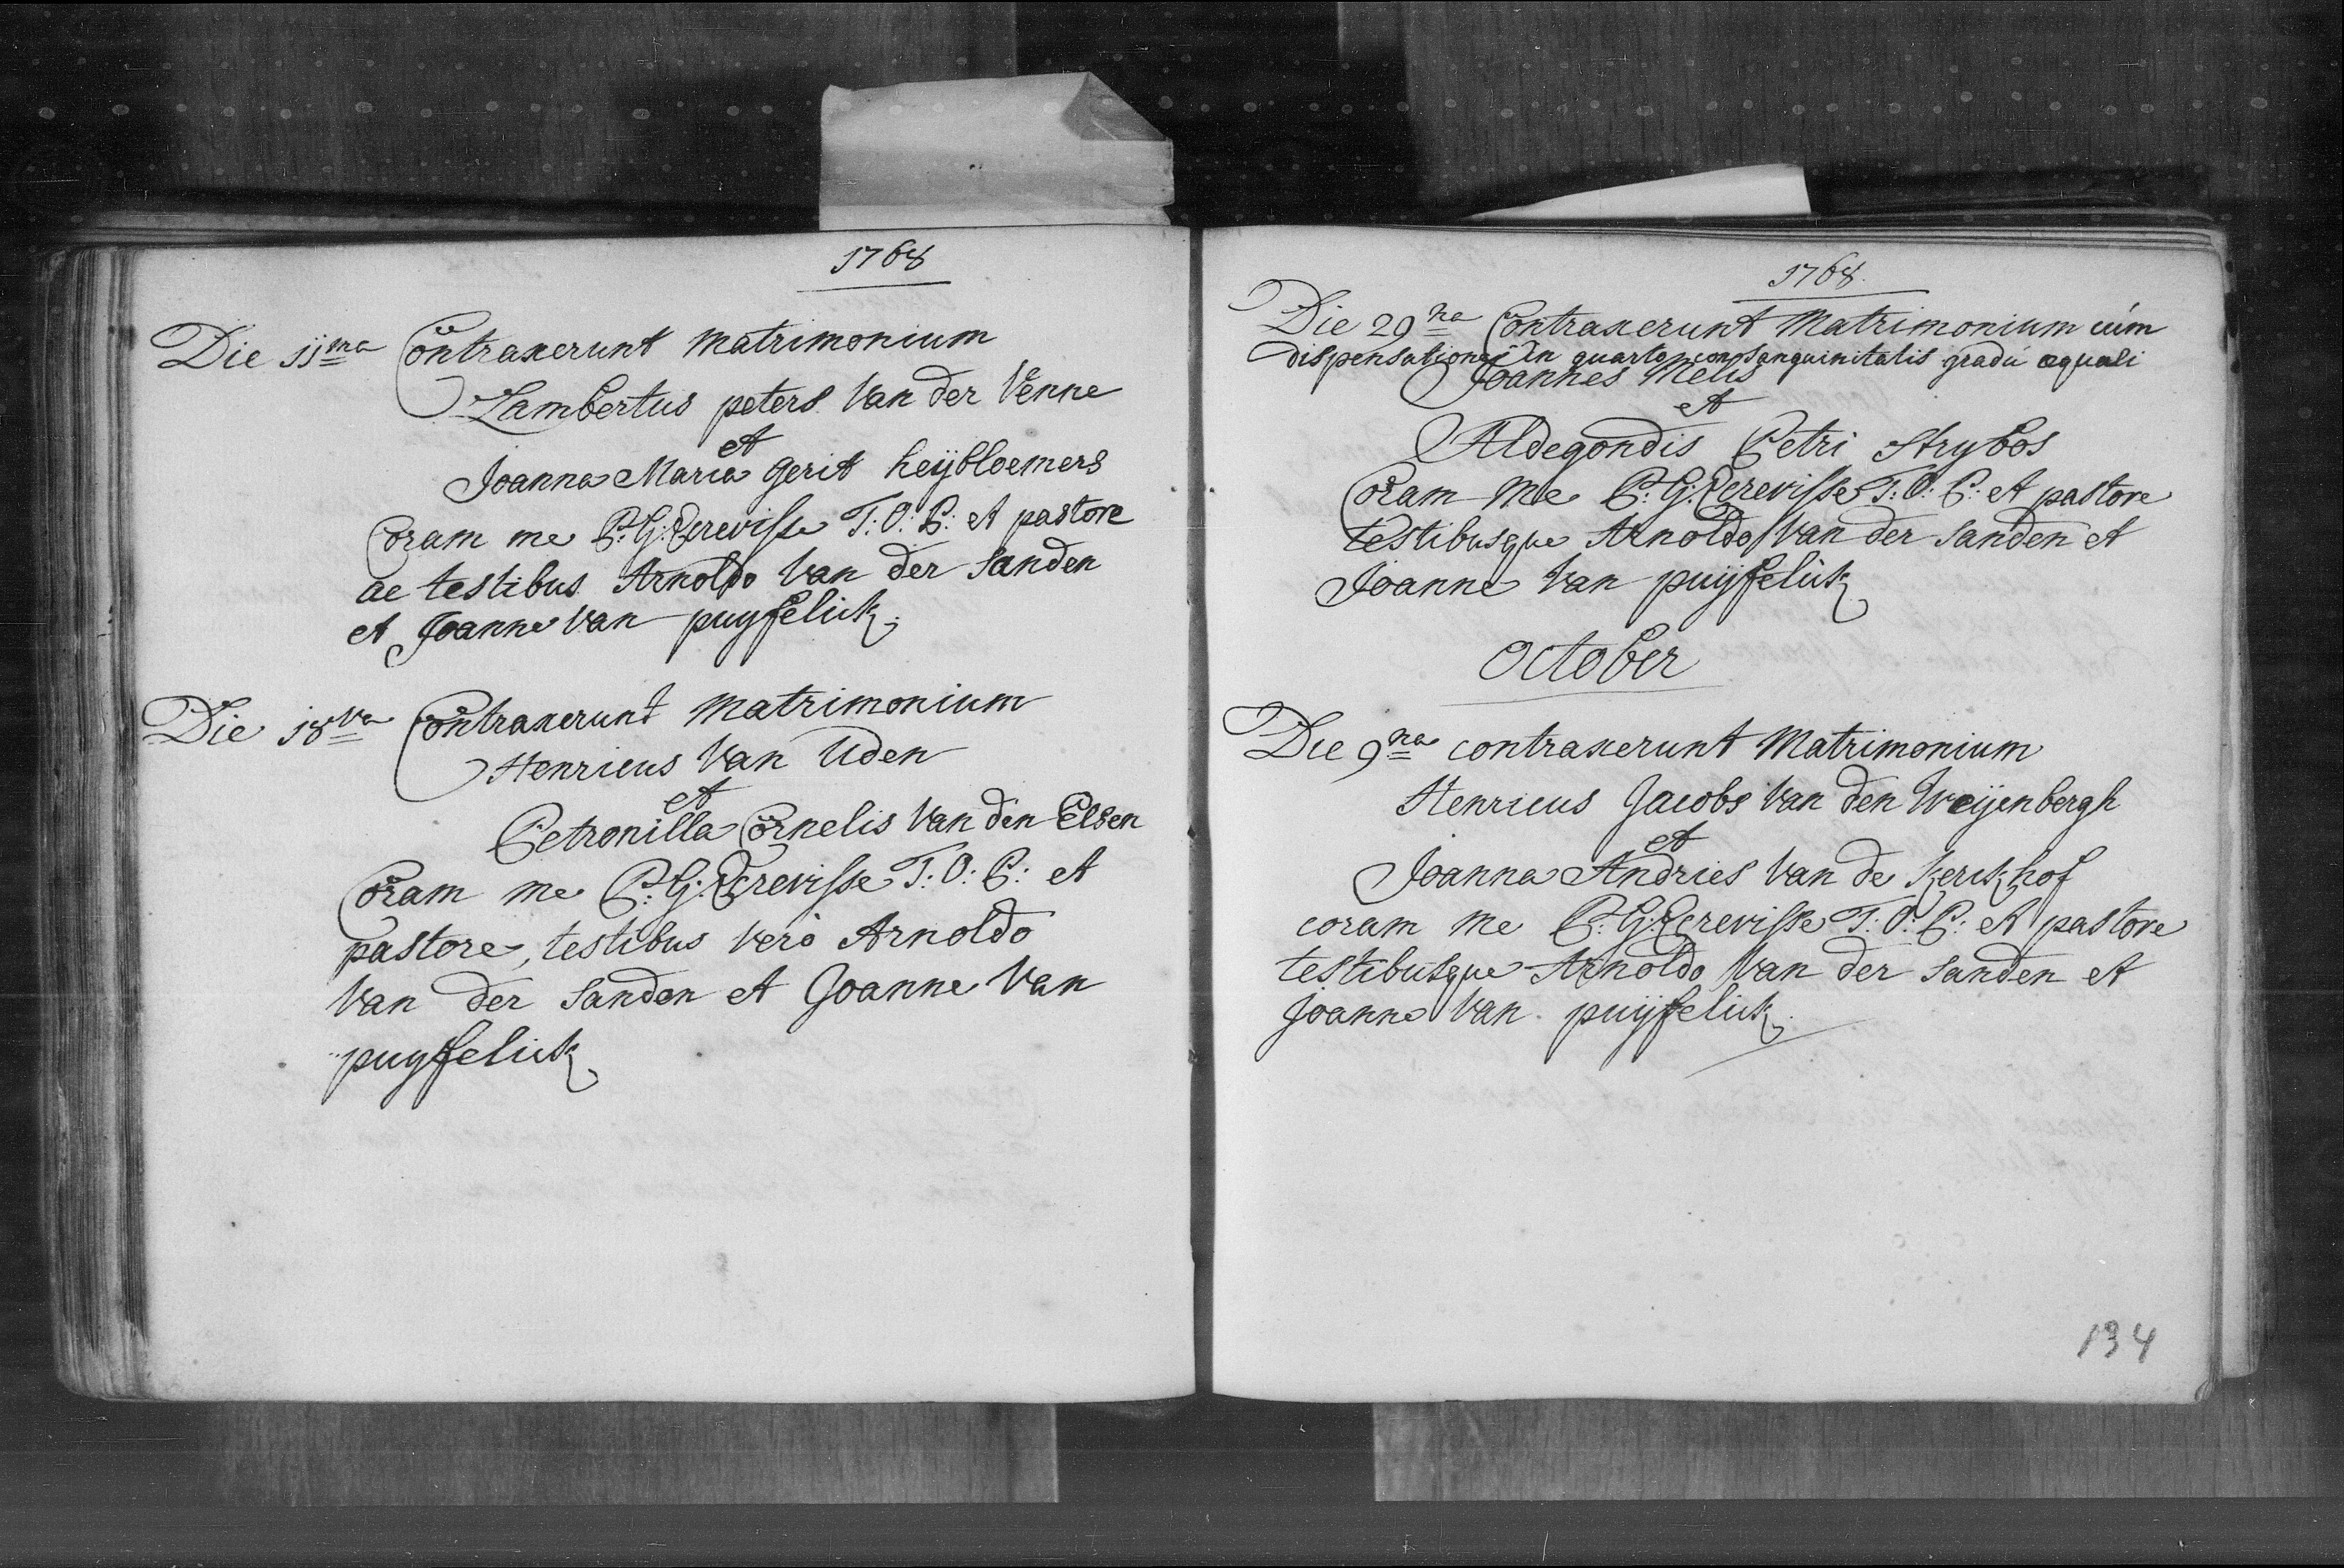 1768
Die 11ma Contraxerunt Matrimonium
Lambertus peters Van der Venne
et
Joanna Maria Gerit heijbloemers
Coram me P: G: Ecrevisse T: O: P: et pastore
ac testibus Arnoldo Van der Sanden
et Joanne Van puyfelick.
Die 18va Contraxerunt Matrimonium
Henricus Van Uden
et
Petronilla Cornelis Van den Elsen
Coram me P: G: Ecrevisse T: O: P: et
pastore, testibus verò Arnoldo
Van der Sanden et Joanne Van
puyfelick
1768.
Die 29na Contraxerunt Matrimonium cúm
dispensatione in quarto consanguinitatis gradú æquali
Joannes Melis
et
Aldegondis Petri Strybos
Coram Me P: G: Ecrevisse T: O: P: et pastore
testibusque Arnoldo Van der Sanden et
Joanne Van puijfelick
October
Die 9na contraxerunt Matrimonium
Henricus Jacobs Van den Weijenbergh
et
Joanna Andries Van de Kerckhof
coram me P: G: Ecrevisse T: O: P: et pastore
testibusque Arnoldo Van der Sanden et
Joanne Van puijfelick.
134